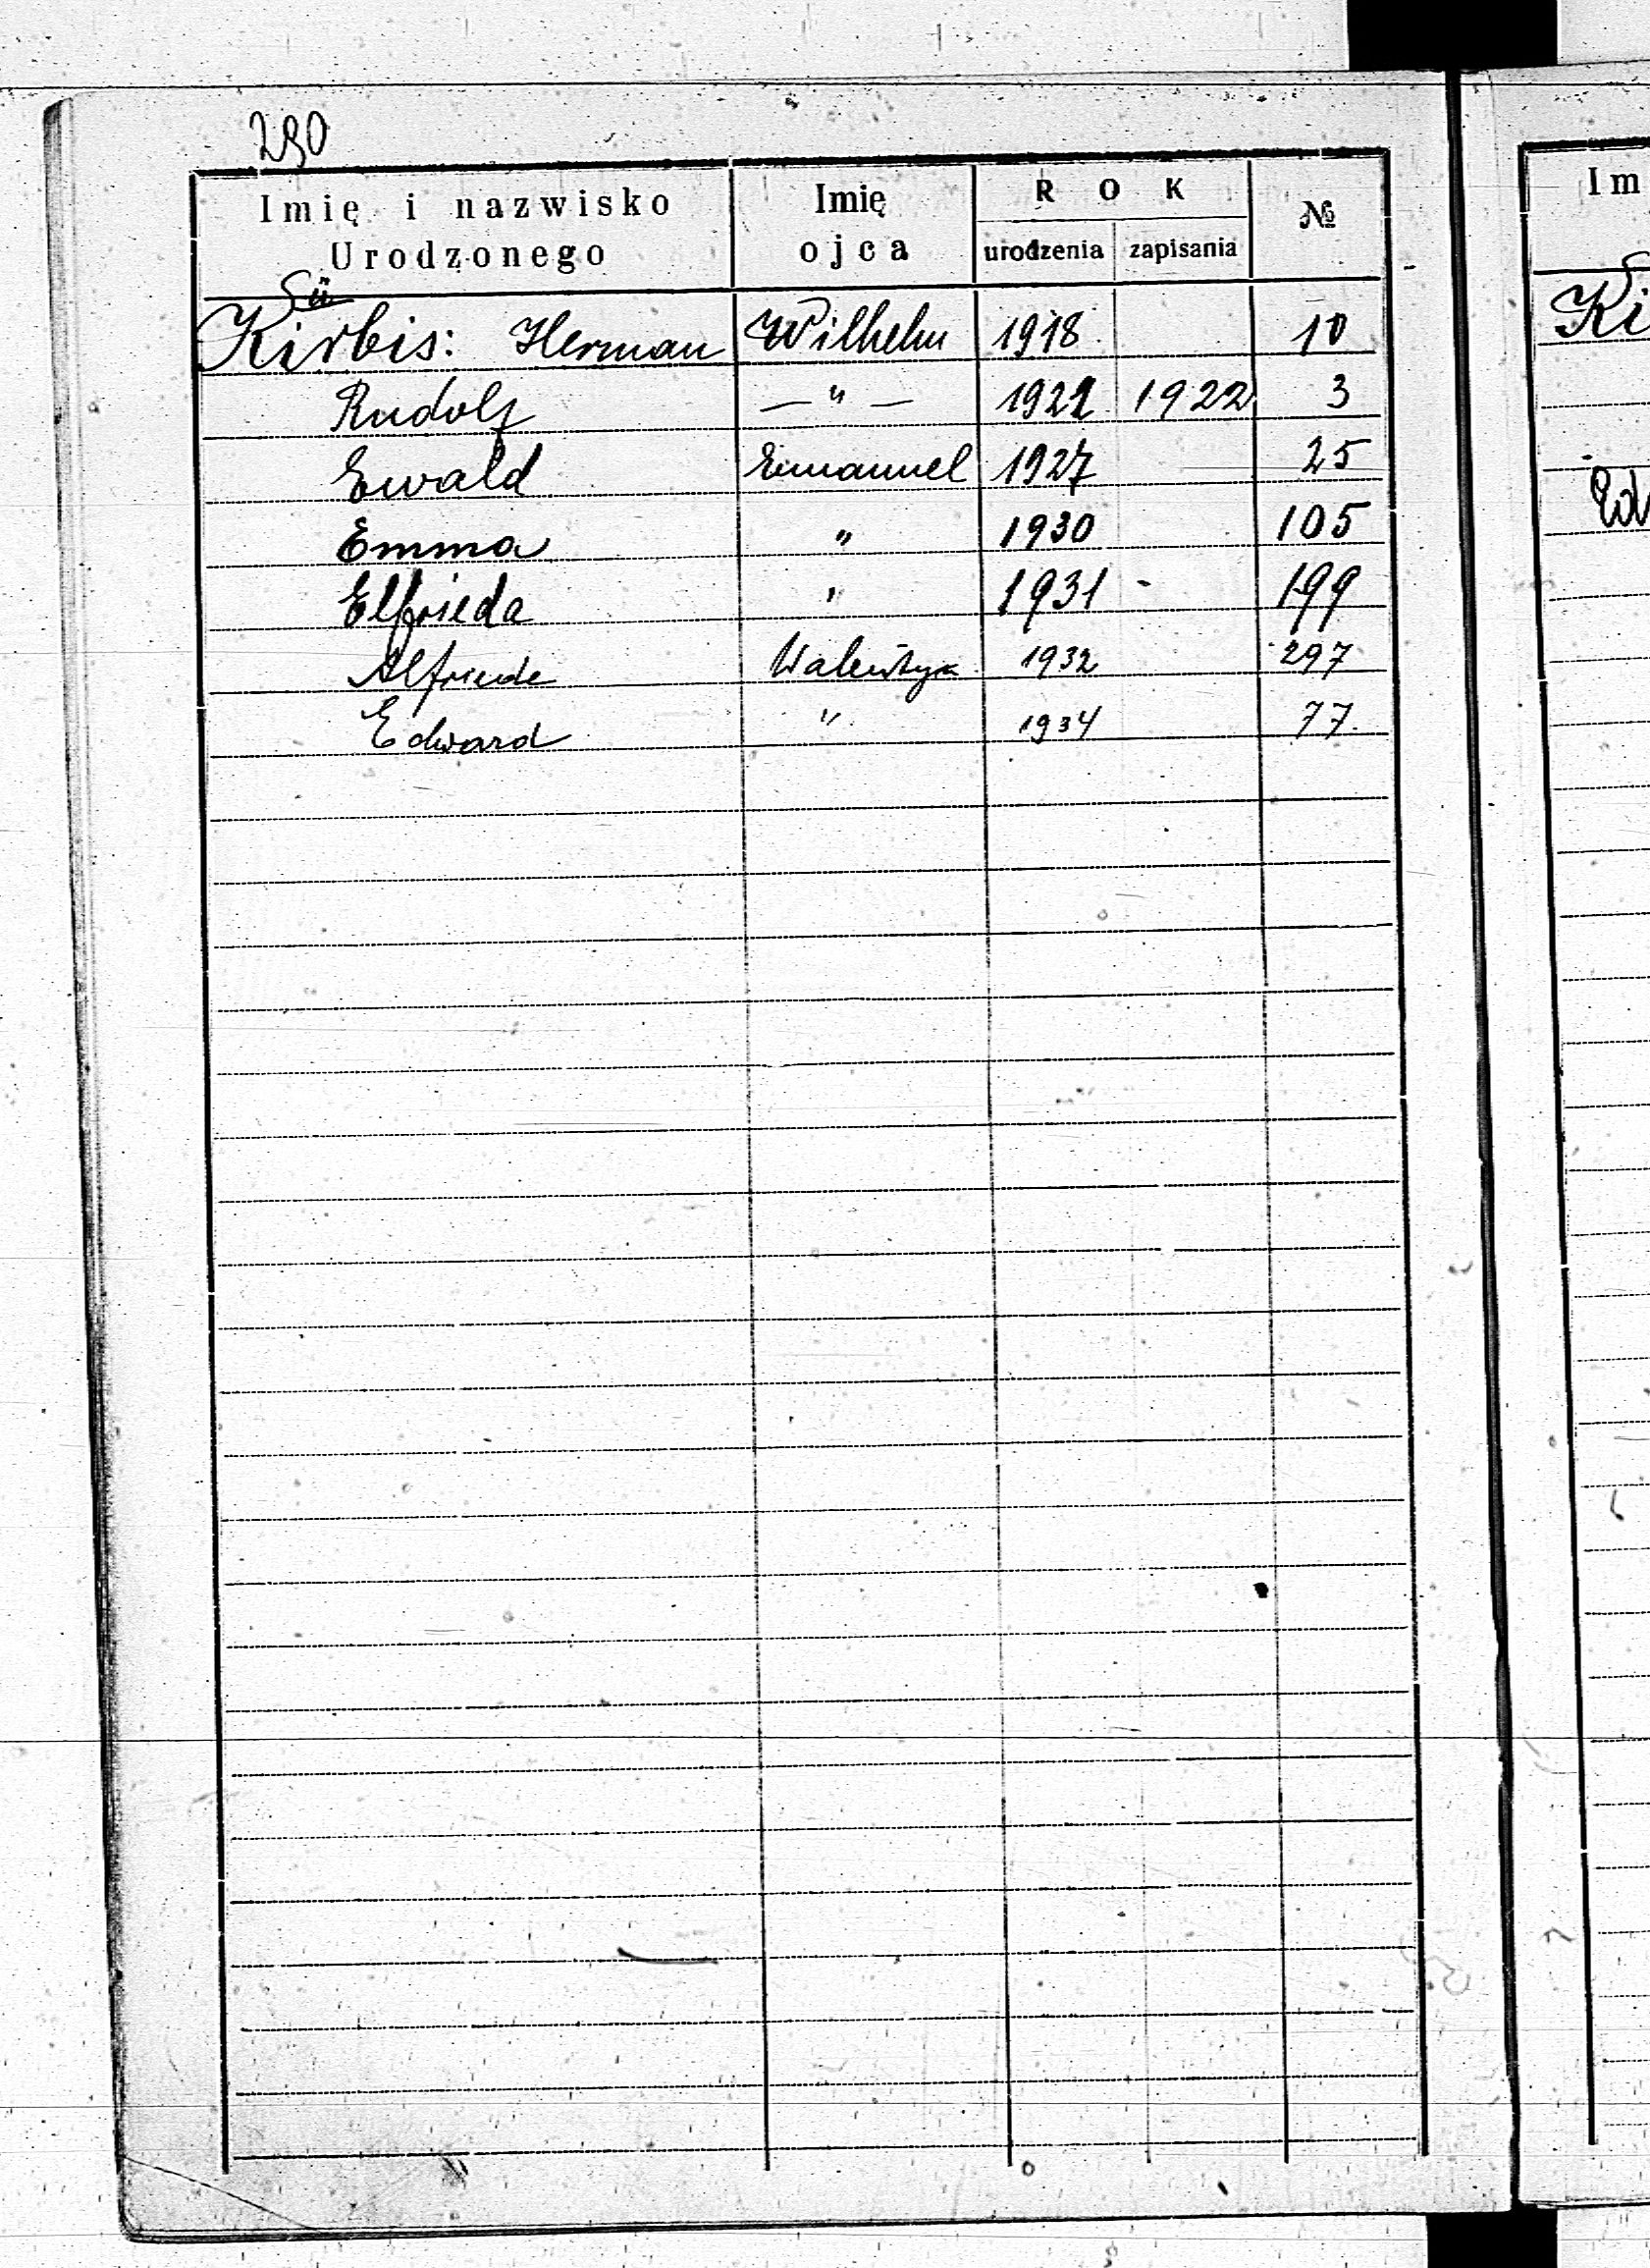 290
Imię i nazwisko Urodzonego Imię ojca ROK urodzenia zapisania №
ü
Kirbis: Herman Wilhelm 1918 10
Rudolf — " — 1921 1922 3
Ewald Emanuel 1927 25
Emma " 1930 105
Elfrieda " 1931 - 199
Alfriede Walentyn 1932 297
Edward " 1934 77.
Im
Ki
Ed